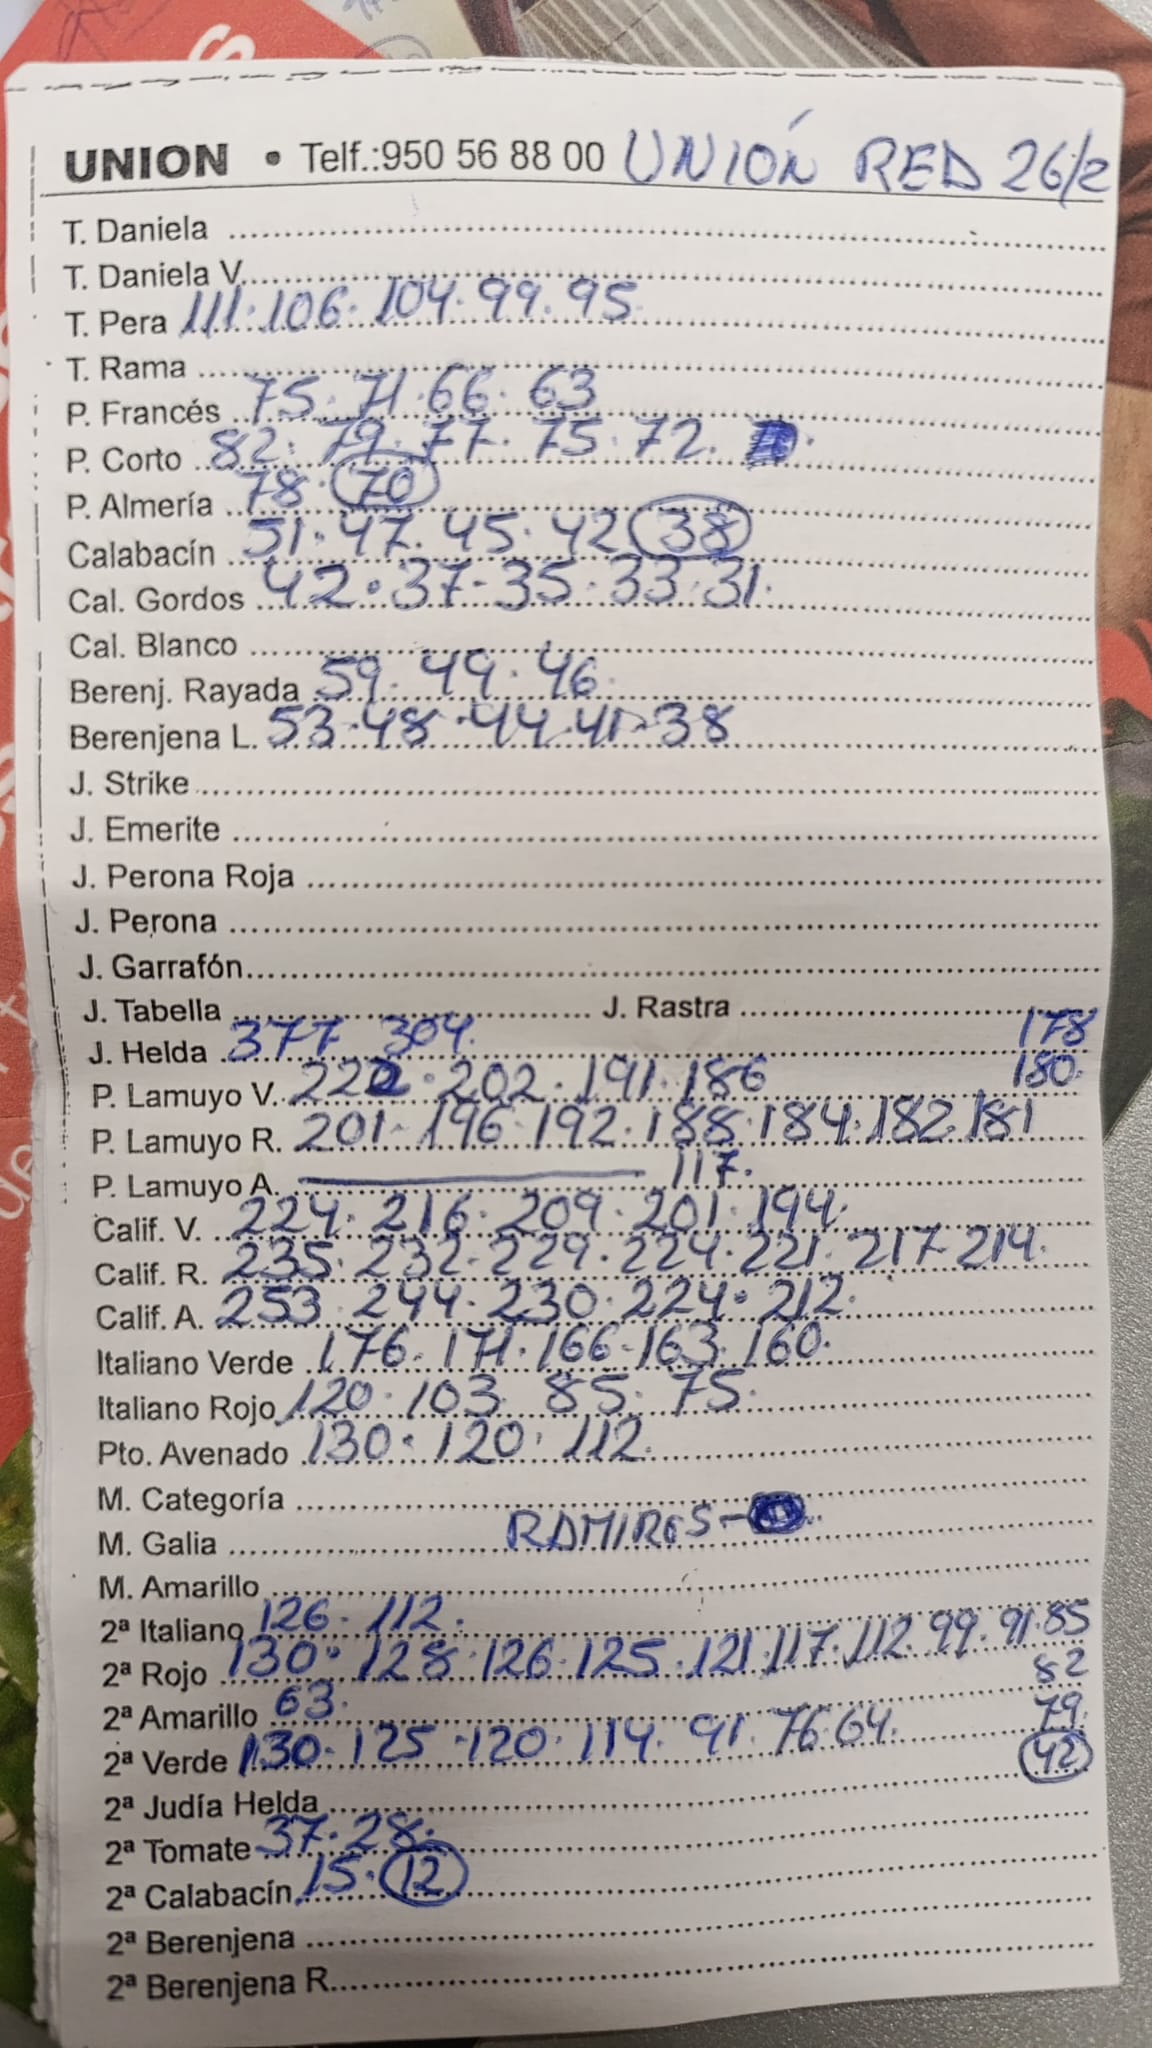 UNION • Telf.:950 56 88 00 UNIÓN RED 26/2
T. Daniela
T. Daniela V.
T. Pera 111. 106. 104. 99. 95
T. Rama
P. Francés 75. 71. 66. 63
P. Corto 82. 79. 77. 75. 72.
P. Almería 78. 70
Calabacín 51. 47. 45. 42 38
Cal. Gordos 42. 37. 35. 33. 31.
Cal. Blanco
Berenj. Rayada 59. 49. 46.
Berenjena L. 53. 48. 44. 41. 38
J. Strike
J. Emerite
J. Perona Roja
J. Perona
J. Garrafón
J. Tabella J. Rastra
J. Helda 377 304. 178
P. Lamuyo V. 222. 202. 191. 186 180.
P. Lamuyo R. 201. 196. 192. 188. 184. 182. 181
P. Lamuyo A. 117.
Calif. V. 224. 216. 209. 201. 194.
Calif. R. 235. 232. 229. 224. 221. 217. 214.
Calif. A. 253. 244. 230. 224. 212.
Italiano Verde 176. 171. 166. 163. 160.
Italiano Rojo 120. 103. 85. 75.
Pto. Avenado 130. 120. 112.
M. Categoría
M. Galia RAMIROS-
M. Amarillo
2ª Italiano 126. 112.
2ª Rojo 130. 128. 126. 125. 121. 117. 112. 99. 91. 85
82
2ª Amarillo 63. 79.
2ª Verde 130. 125. 120. 114. 91. 76 64. 42
2ª Judía Helda
2ª Tomate 37. 28.
2ª Calabacín 15. 12
2ª Berenjena
2ª Berenjena R.